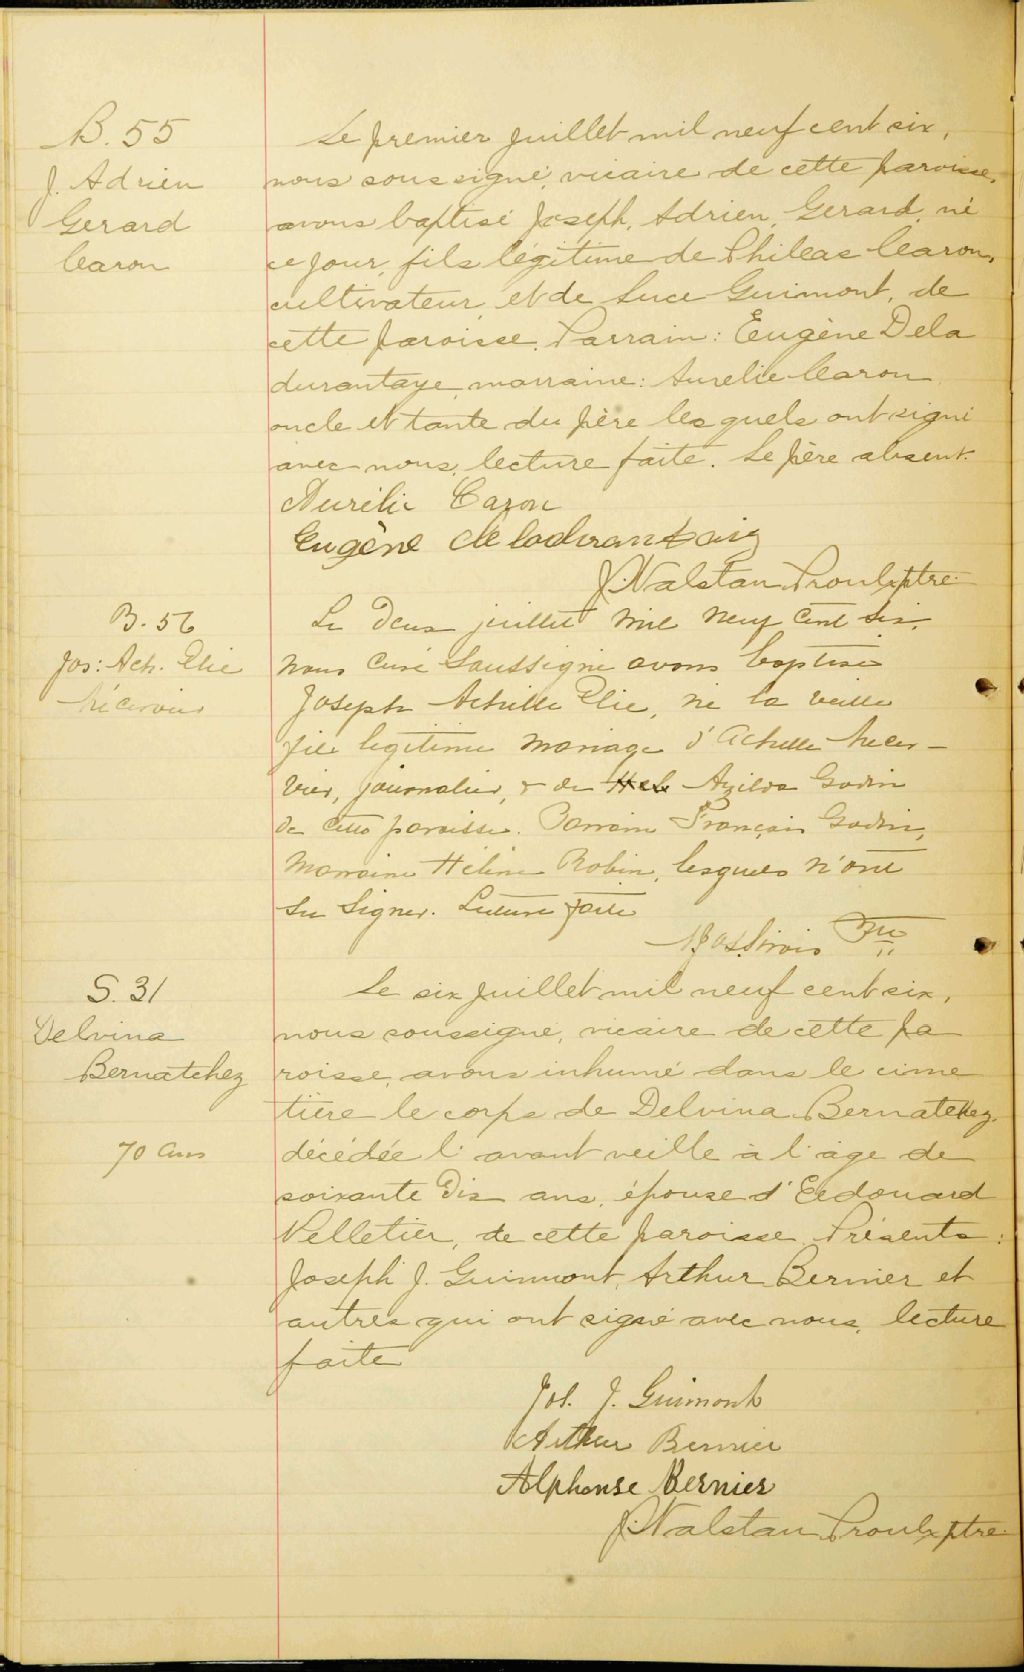 B. 55
J. Adrien
Gerard
Caron
Le premier juillet mil neuf cent six,
nous soussigné, vicaire de cette paroisse,
avons baptisé Joseph, Adrien, Gerard, né
ce jour, fils légitime de Phileas Caron,
cultivateur, et de Luce Guimont, de
cette paroisse. Parrain: Eugène Dela
durantaye, marraine: Aurelie Caron
oncle et tante du père lesquels ont signé
avec nous, lecture faite. Le père absent.
Aurélie Caron
Eugène
J. Nalstan Proulx ptre.
B. 56
Jos: Ach. Elie
Le Deux juillet mil neuf cent six,
nous Curé Soussigné avons baptisé
Joseph Achille Elie, né la veille
fils légitime mariage d'Achille
vier, journalier, & de Azilda Godin
de cette paroisse. Parrain François Godin,
Marraine Hélène Robin, lesquels n'ont
su signer. Lecture faite
Ptre
S. 31
Delvina
Bernatchez
70 ans
Le six juillet mil neuf cent six,
nous soussigné, vicaire de cette pa
roisse, avons inhumé dans le cime
tière le corps de Delvina Bernatchez,
décédée l'avant veille à l'âge de
soixante Dix ans, épouse d'Eedouard
Pelletier, de cette paroisse. Présents:
Joseph J. Guimont, Arthur Bernier et
autres qui ont signé avec nous, lecture
faite
Jos. J. Guimont
Arthur Bernier
Alphonse Bernier
J. Nalstan Proulx ptre.